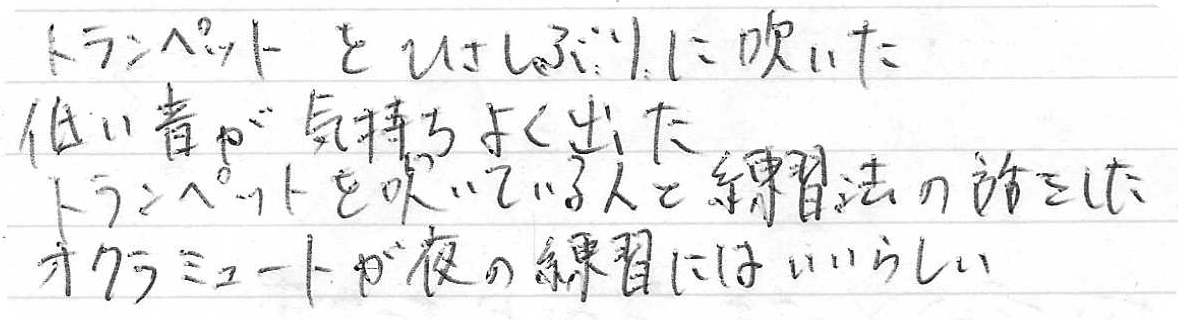 トランペットをひさしぶりに吹いた
低い音が気持ちよく出た
トランペットを吹いている人と練習法の話をした
オクラミュートが夜の練習にはいいらしい